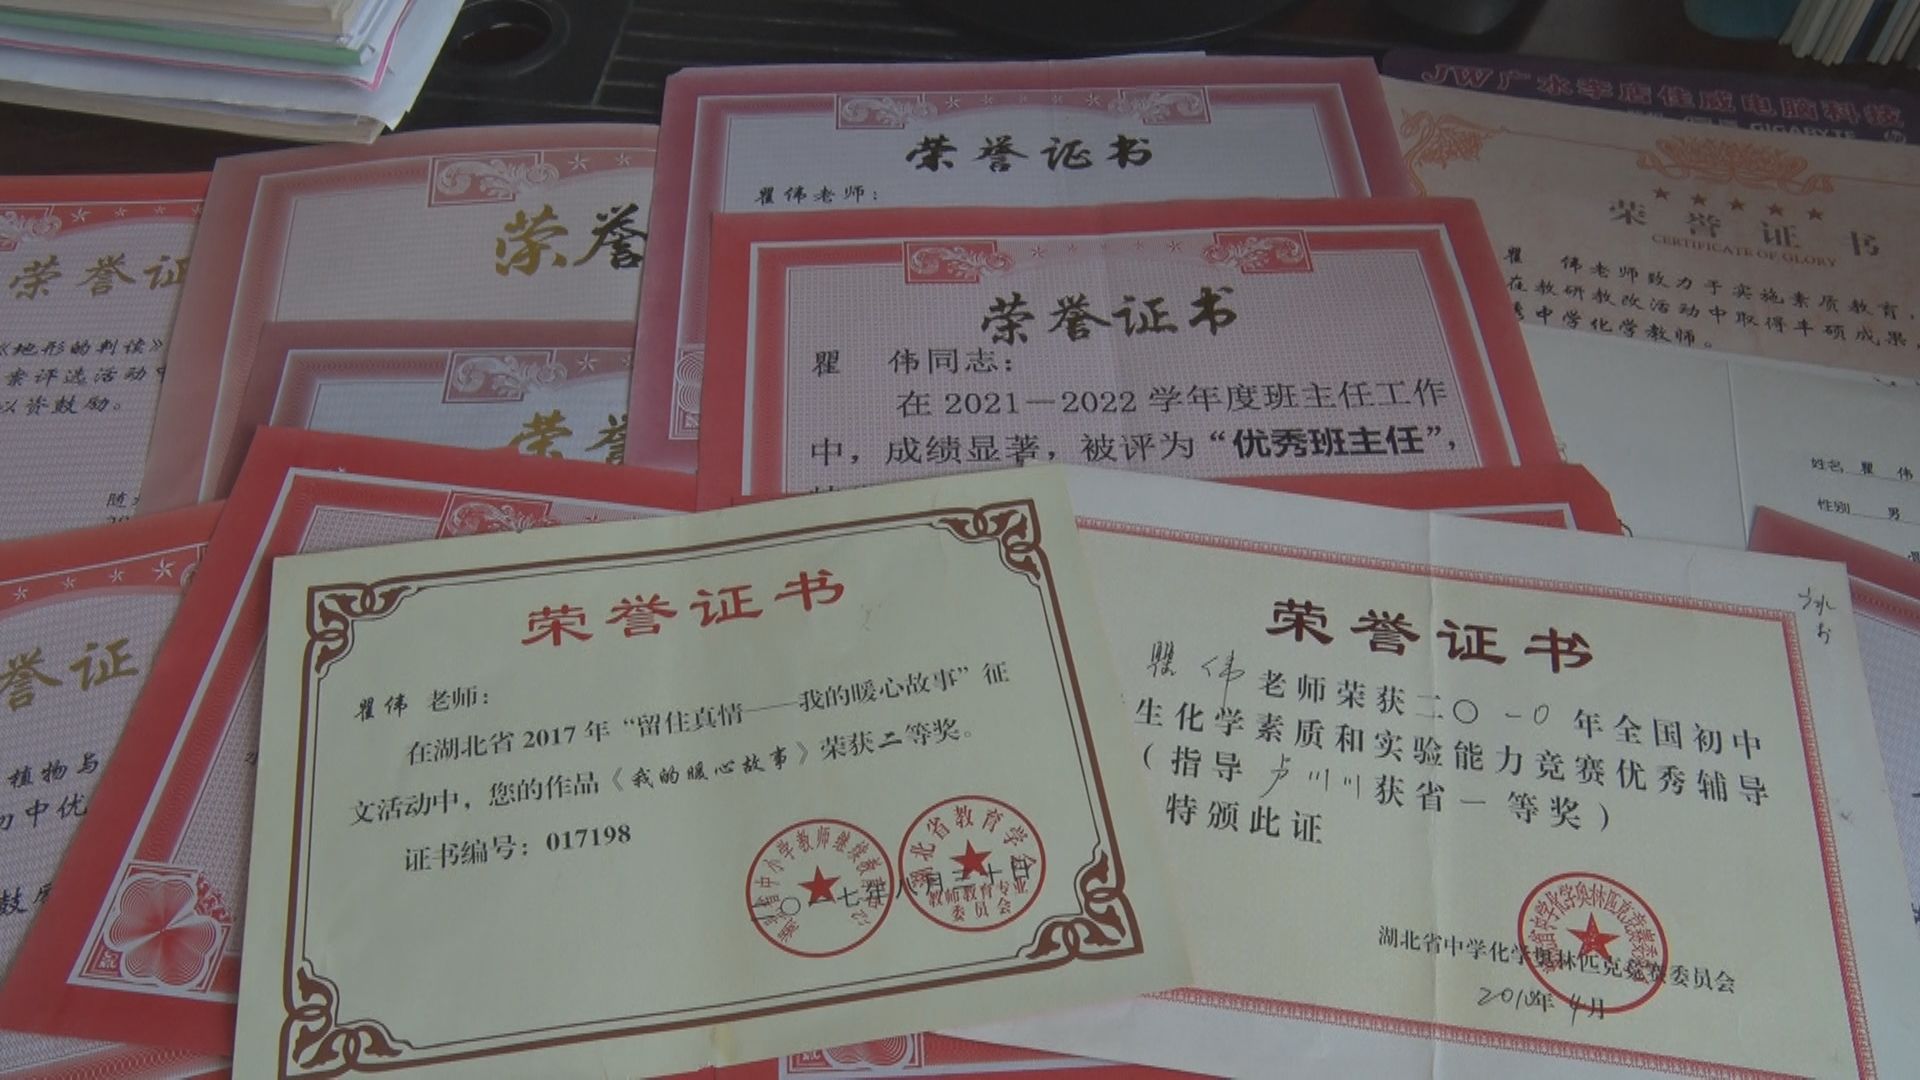 JW广水李店佳威电脑科技
GIGABYTE
荣誉证书
瞿伟老师：
荣誉证书
CERTIFICATE OF GLORY
瞿 伟老师致力于实施素质教育，
在教研教改活动中取得丰硕成果
秀中学化学教师。
荣誉
荣誉证
《地形的判读》
案评选活动中
以资鼓励。
荣誉证书
瞿 伟同志：
在2021－2022学年度班主任工作
中，成绩显著，被评为“优秀班主任”，
荣誉
姓名 瞿伟
性别 男
誉证
植物与
初中优
荣誉证书
瞿伟 老师：
在湖北省2017年“留住真情——我的暖心故事”征
文活动中，您的作品《我的暖心故事》荣获二等奖。
证书编号：017198
湖北省教育学会
教师教育专业
委员会
七年八月三十日
荣誉证书
瞿伟老师荣获二〇一0年全国初中
生化学素质和实验能力竞赛优秀辅导
（指导卢川川获省一等奖）
特颁此证
湖北省中学化学奥林匹克竞赛委员会
2010年4月